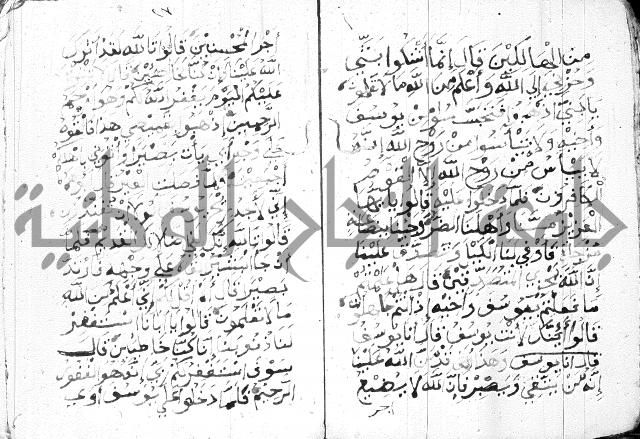 من الهالكين قال إنما أشكوا بثي
وحزني إلى الله وأعلم من الله ما لا تعلمون
يا بني اذهبوا فتحسسوا من يوسف
وأخيه ولا تيأسوا من روح الله إنه
لا ييأس من روح الله إلا القوم
الكافرون فلما دخلوا عليه قالوا يا أيها
العزيز مسنا وأهلنا الضر وجئنا ببضاعة
مزجاة فأوف لنا الكيل وتصدق علينا
إن الله يجزي المتصدقين قال هل علمتم
ما فعلتم بيوسف وأخيه إذ أنتم جاهلون
قالوا أئنك لأنت يوسف قال أنا يوسف
قال أنا يوسف وهذا أخي قد من الله علينا
إنه من يتقي ويصبر فإن الله لا يضيع
أجر
١٧
أجر المحسنين قالوا تالله لقد آثرك
الله علينا وإن كنا لخاطئين قال لا
عليكم اليوم يغفر الله لكم وهو أرحم
الرحمين اذهبوا بقميصي هذا فألقوه
على وجه أبي يأت بصيرا وأتوني بأهلكم
أجمعين ولما فصلت العير قال
إني لأجد ريح يوسف لولا أن تفندون
قالوا تالله إنك لفي ضلالك القديم فلما
أن جاء البشير ألقاه على وجهه فارتد
بصيرا قال ألم أقل لكم إني أعلم من الله
ما لا تعلمون قالوا يا أبانا استغفر
لنا ذنوبنا إنا كنا خاطئين قال
سوف أستغفر لكم ربي إنه هو الغفور
الرحيم فلما دخلوا على يوسف آوى
جامعة النجاح الوطنية